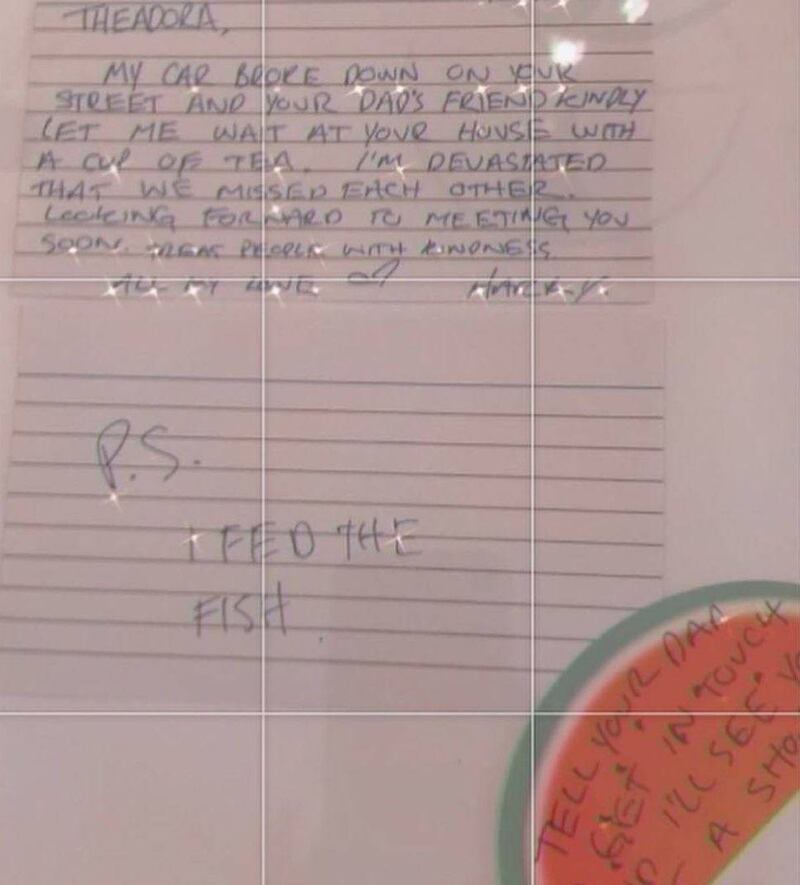 THEADORA,
MY CAR BROKE DOWN ON YOUR
STREET AND YOUR DAD'S FRIEND KINDLY
LET ME WAIT AT YOUR HOUSE WITH
A CUP OF TEA. I'M DEVASTATED
THAT WE MISSED EACH OTHER.
LOOKING FORWARD TO MEETING YOU
SOON. TREAT PEOPLE WITH KINDNESS
ALL MY LOVE
P.S.
I FED THE
FISH.
TELL YOUR DAD
GET IN TOUCH
I'LL SEE
A SHO